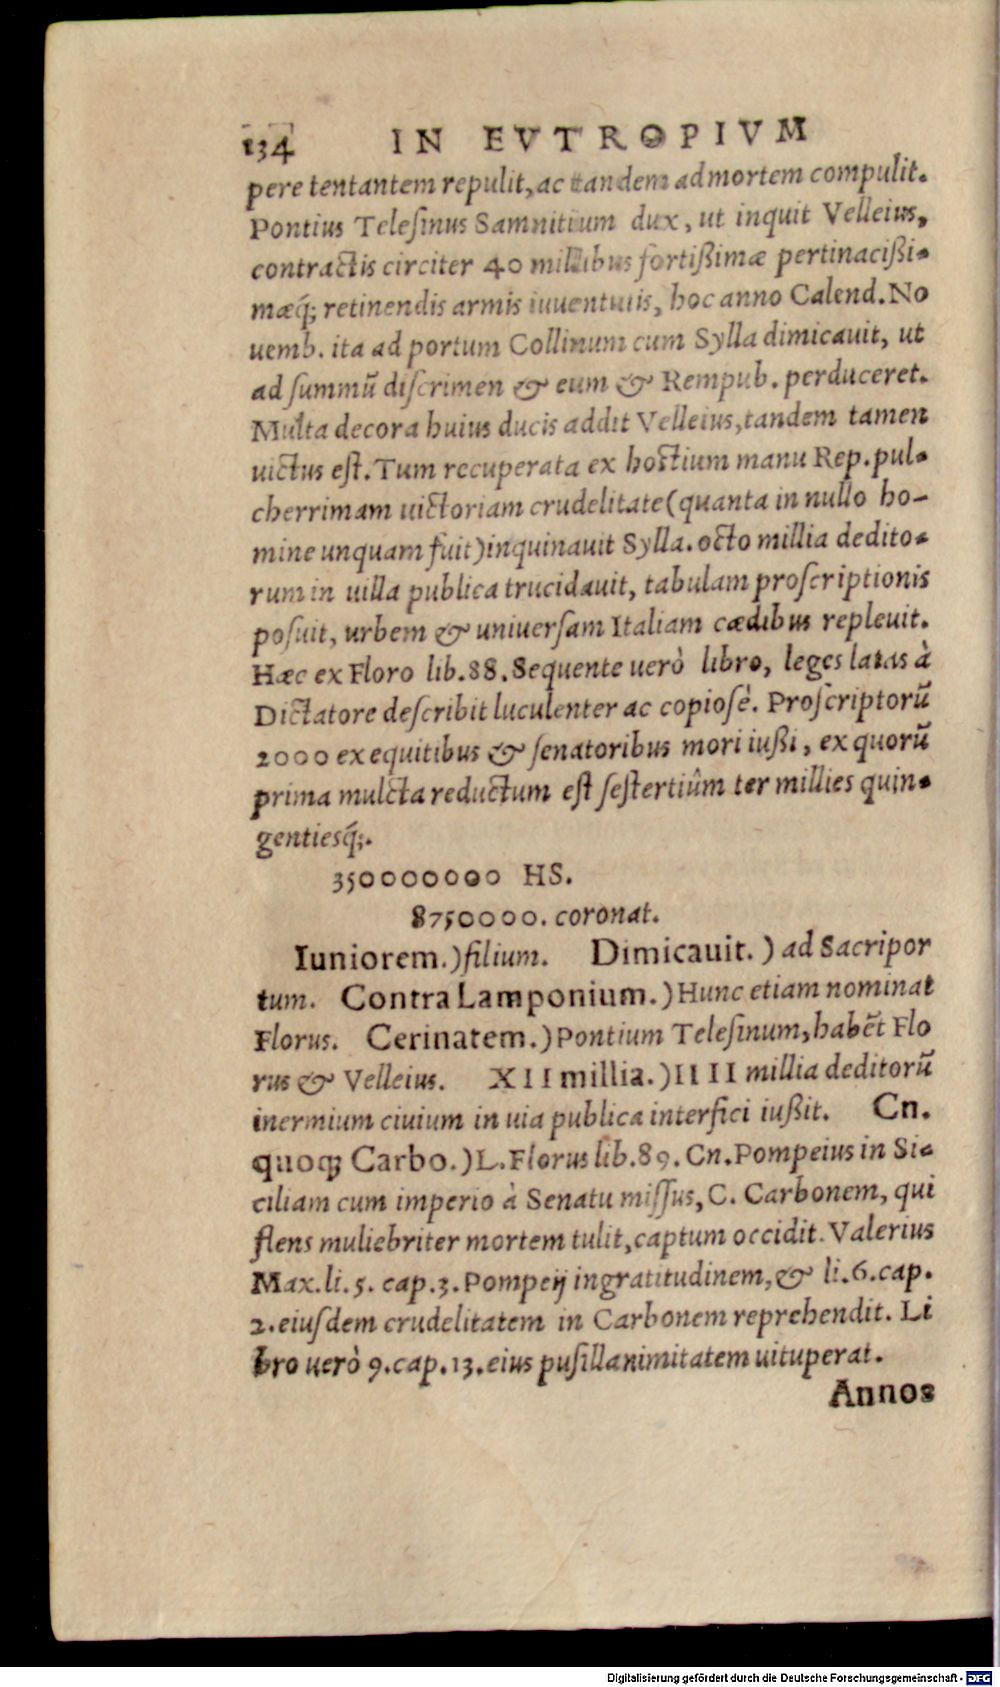 134 IN EVTROPIVM
pere tentantem repulit, ac tandem ad mortem compulit.
Pontius Telesinus Samnitium dux, ut inquit Velleius,
contractis circiter 40 millibus fortißimæ pertinacißi-
mæq́; retinendis armis iuuentutis, hoc anno Calend. No
uemb. ita ad portum Collinum cum Sylla dimicauit, ut
ad summū discrimen & eum & Rempub. perduceret.
Multa decora huius ducis addit Velleius, tandem tamen
uictus est. Tum recuperata ex hostium manu Rep. pul-
cherrimam uictoriam crudelitate (quanta in nullo ho-
mine unquam fuit) inquinauit Sylla. octo millia dedito-
rum in uilla publica trucidauit, tabulam proscriptionis
posuit, urbem & uniuersam Italiam cædibus repleuit.
Hæc ex Floro lib. 88. Sequente uerò libro, leges latas à
Dictatore describit luculenter ac copiosè. Proscriptorū
2000 ex equitibus & senatoribus mori iußi, ex quorū
prima mulcta reductum est sestertiûm ter millies quin-
gentiesq́;.
350000000 HS.
8750000. coronat.
Iuniorem.) filium. Dimicauit.) ad Sacripor
tum. Contra Lamponium.) Hunc etiam nominat
Florus. Cerinatem.) Pontium Telesinum, habēt Flo
rus & Velleius. XII millia.) IIII millia deditorū
inermium ciuium in uia publica interfici iußit. Cn.
quoq; Carbo.) L. Florus lib. 89. Cn. Pompeius in Si-
ciliam cum imperio à Senatu missus, C. Carbonem, qui
flens muliebriter mortem tulit, captum occidit. Valerius
Max. li. 5. cap. 3. Pompeij ingratitudinem, & li. 6. cap.
2. eiusdem crudelitatem in Carbonem reprehendit. Li
bro uerò 9. cap. 13. eius pusillanimitatem uituperat.
Annos
Digitalisierung gefördert durch die Deutsche Forschungsgemeinschaft - DFG